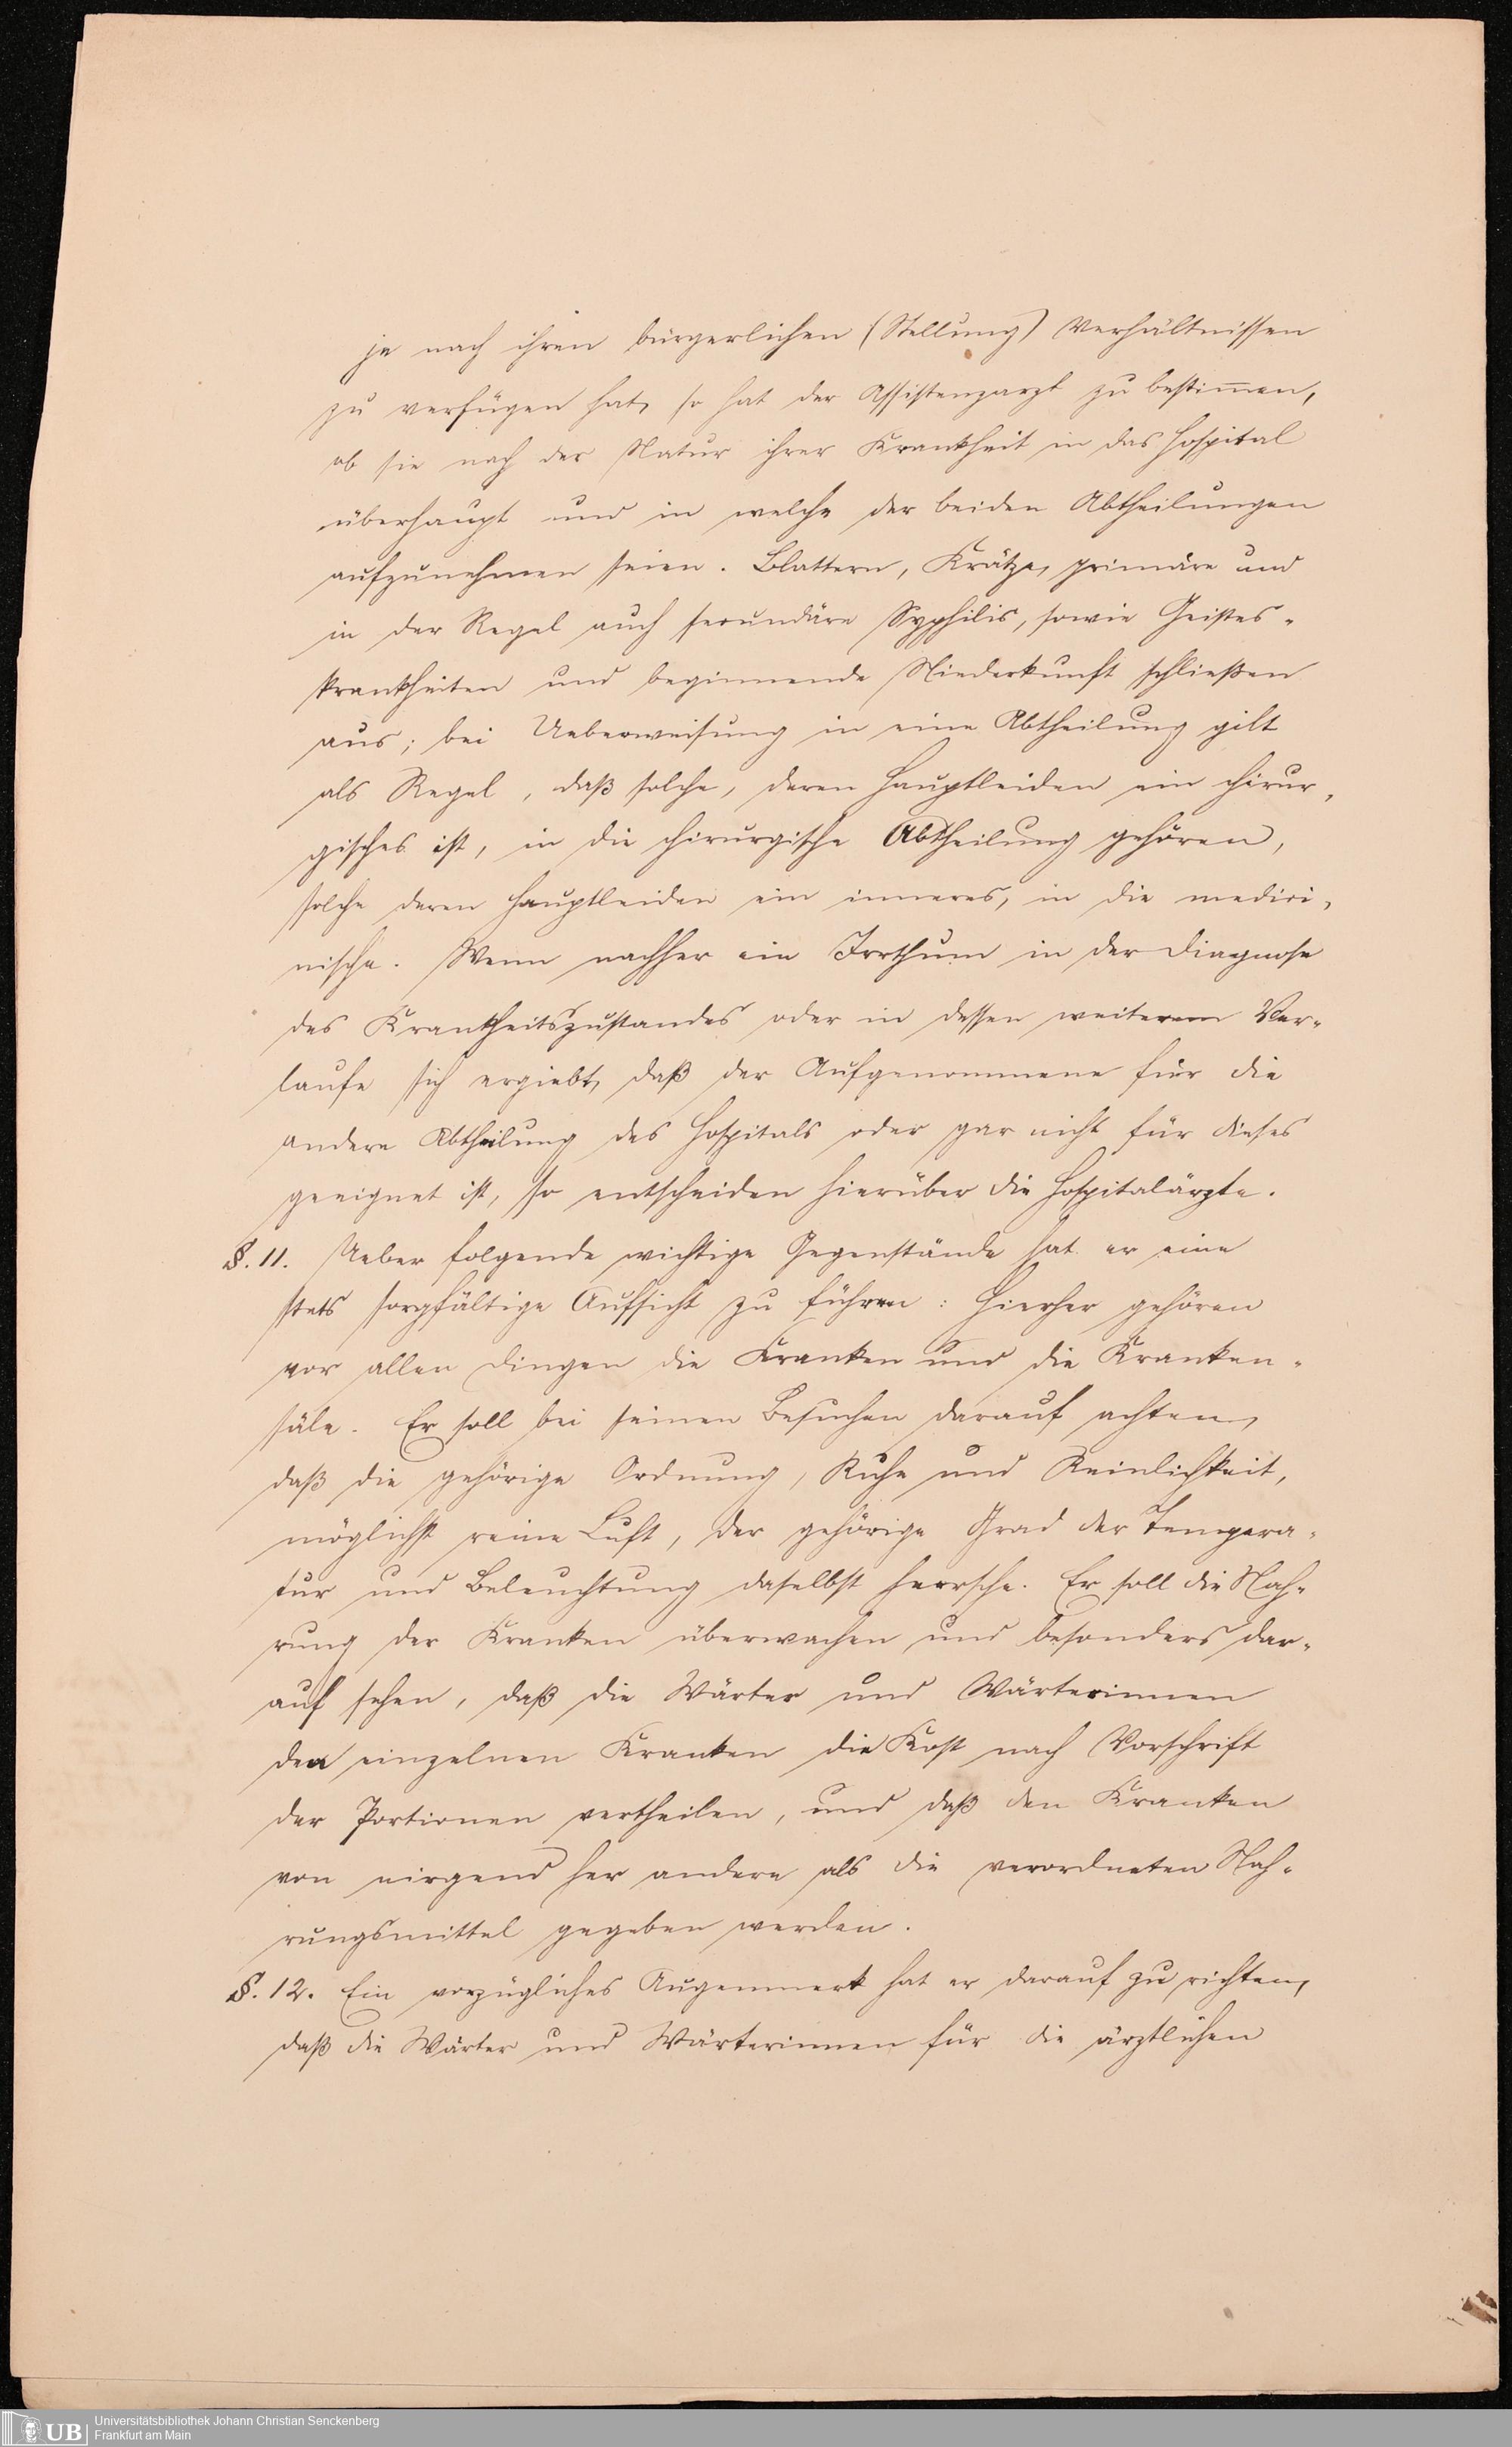 je nach ihren bürgerlichen (Stellung) Verhältnissen
zu verfügen hat, so hat der Assistenzarzt zu bestim̅en,
ob sie nach der Natur ihrer Krankheit in das Hospital
überhaupt und in welche der beiden Abtheilungen
aufzunehmen seien. Blattern, Krätze, primäre und
in der Regel auch secundäre Syphilis, sowie Geistes-
krankheiten und beginnende Niederkunft schließen
aus; bei Ueberweisung in eine Abtheilung gilt
als Regel, daß solche, deren Hauptleiden ein chirur-
gisches ist, in die chirurgische Abtheilung gehören,
solche deren Hauptleiden ein inneres, in die medici-
nische. Wenn nachher ein Irrthum in der Diagnose
des Krankheitszustandes oder in dessen weiterem Ver-
laufe sich ergiebt, daß der Aufgenommene für die
andere Abtheilung des Hospitals oder gar nicht für dieses
geeignet ist, so entscheiden hierüber die Hospitalärzte.
§. 11. Ueber folgende wichtige Gegenstände hat er eine
stets sorgfältige Aufsicht zu führen: Hierher gehören
vor allen Dingen die Kranken und die Kranken-
säle. Er soll bei seinen Besuchen darauf achten,
daß die gehörige Ordnung, Ruhe und Reinlichkeit,
möglichst reine Luft, der gehörige Grad der Tempera-
tur und Beleuchtung daselbst herrsche. Er soll die Nah-
rung der Kranken überwachen und besonders dar-
auf sehen, daß die Wärter und Wärterinnen
den einzelnen Kranken die Kost nach Vorschrift
der Portionen vertheilen, und daß den Kranken
von nirgend her andere als die verordneten Nah-
rungsmittel gegeben werden.
§. 12. Ein vorzügliches Augenmerk hat er darauf zu richten,
daß die Wärter und Wärterinnen für die ärztlichen
UB
Universitätsbibliothek Johann Christian Senckenberg
Frankfurt am Main